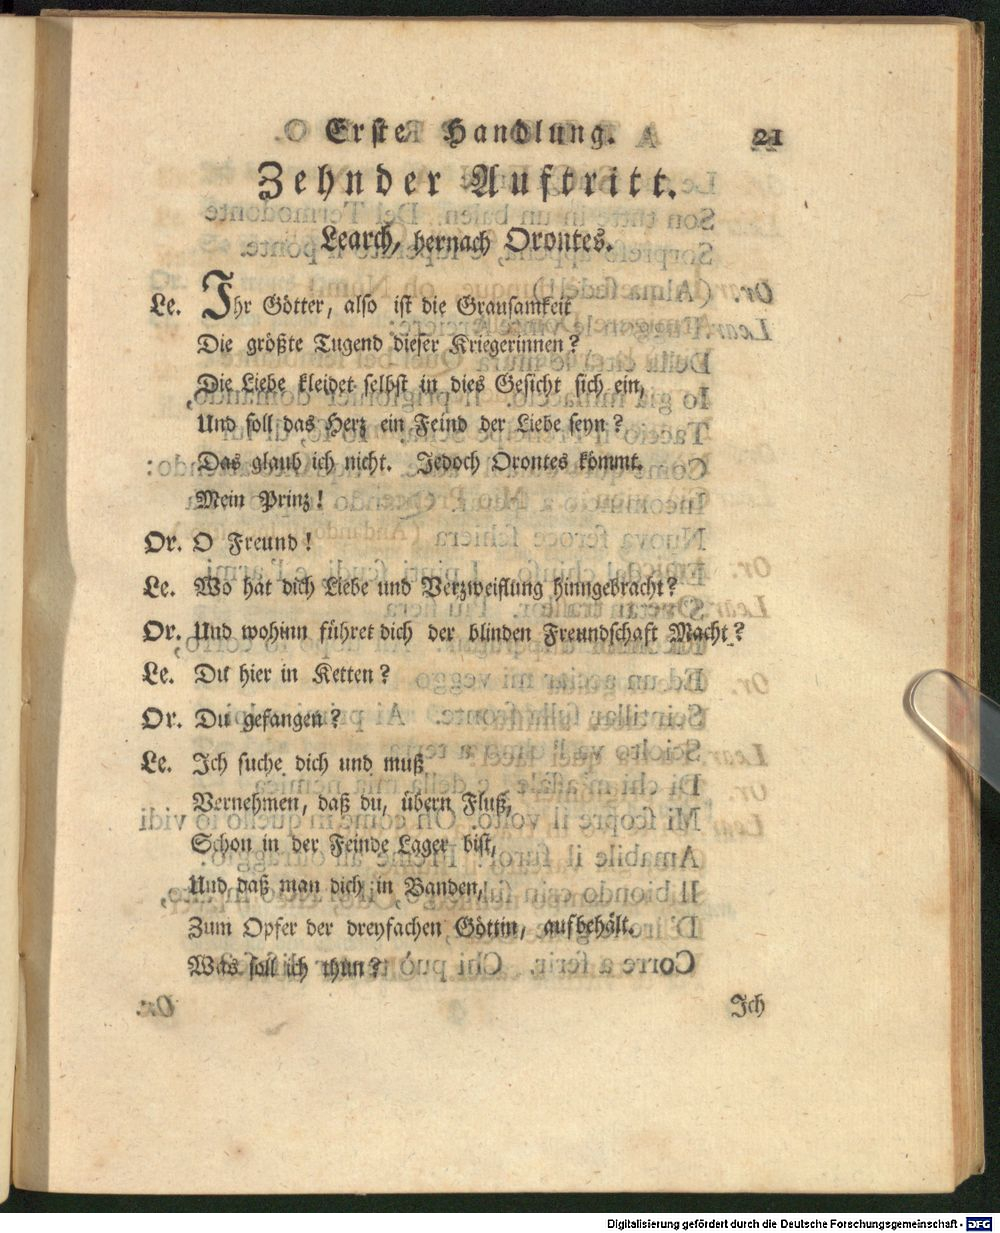 Erste Handlung. 21
Zehnder Auftritt.
Learch, hernach Orontes.
Le. Ihr Götter, also ist die Grausamkeit
Die größte Tugend dieser Kriegerinnen?
Die Liebe kleidet selbst in dies Gesicht sich ein,
Und soll das Herz ein Feind der Liebe seyn?
Das glaub ich nicht. Jedoch Orontes kömmt.
Mein Prinz!
Or. O Freund!
Le. Wo hat dich Liebe und Verzweiflung hinngebracht?
Or. Und wohinn führet dich der blinden Freundschaft Macht?
Le. Du hier in Ketten?
Or. Du gefangen?
Le. Ich suche dich und muß
Vernehmen, daß du, übern Fluß,
Schon in der Feinde Lager bist,
Und daß man dich in Banden,
Zum Opfer der dreyfachen Göttin, aufbehält.
Was soll ich thun?
Ich
Digitalisierung gefördert durch die Deutsche Forschungsgemeinschaft - DFG